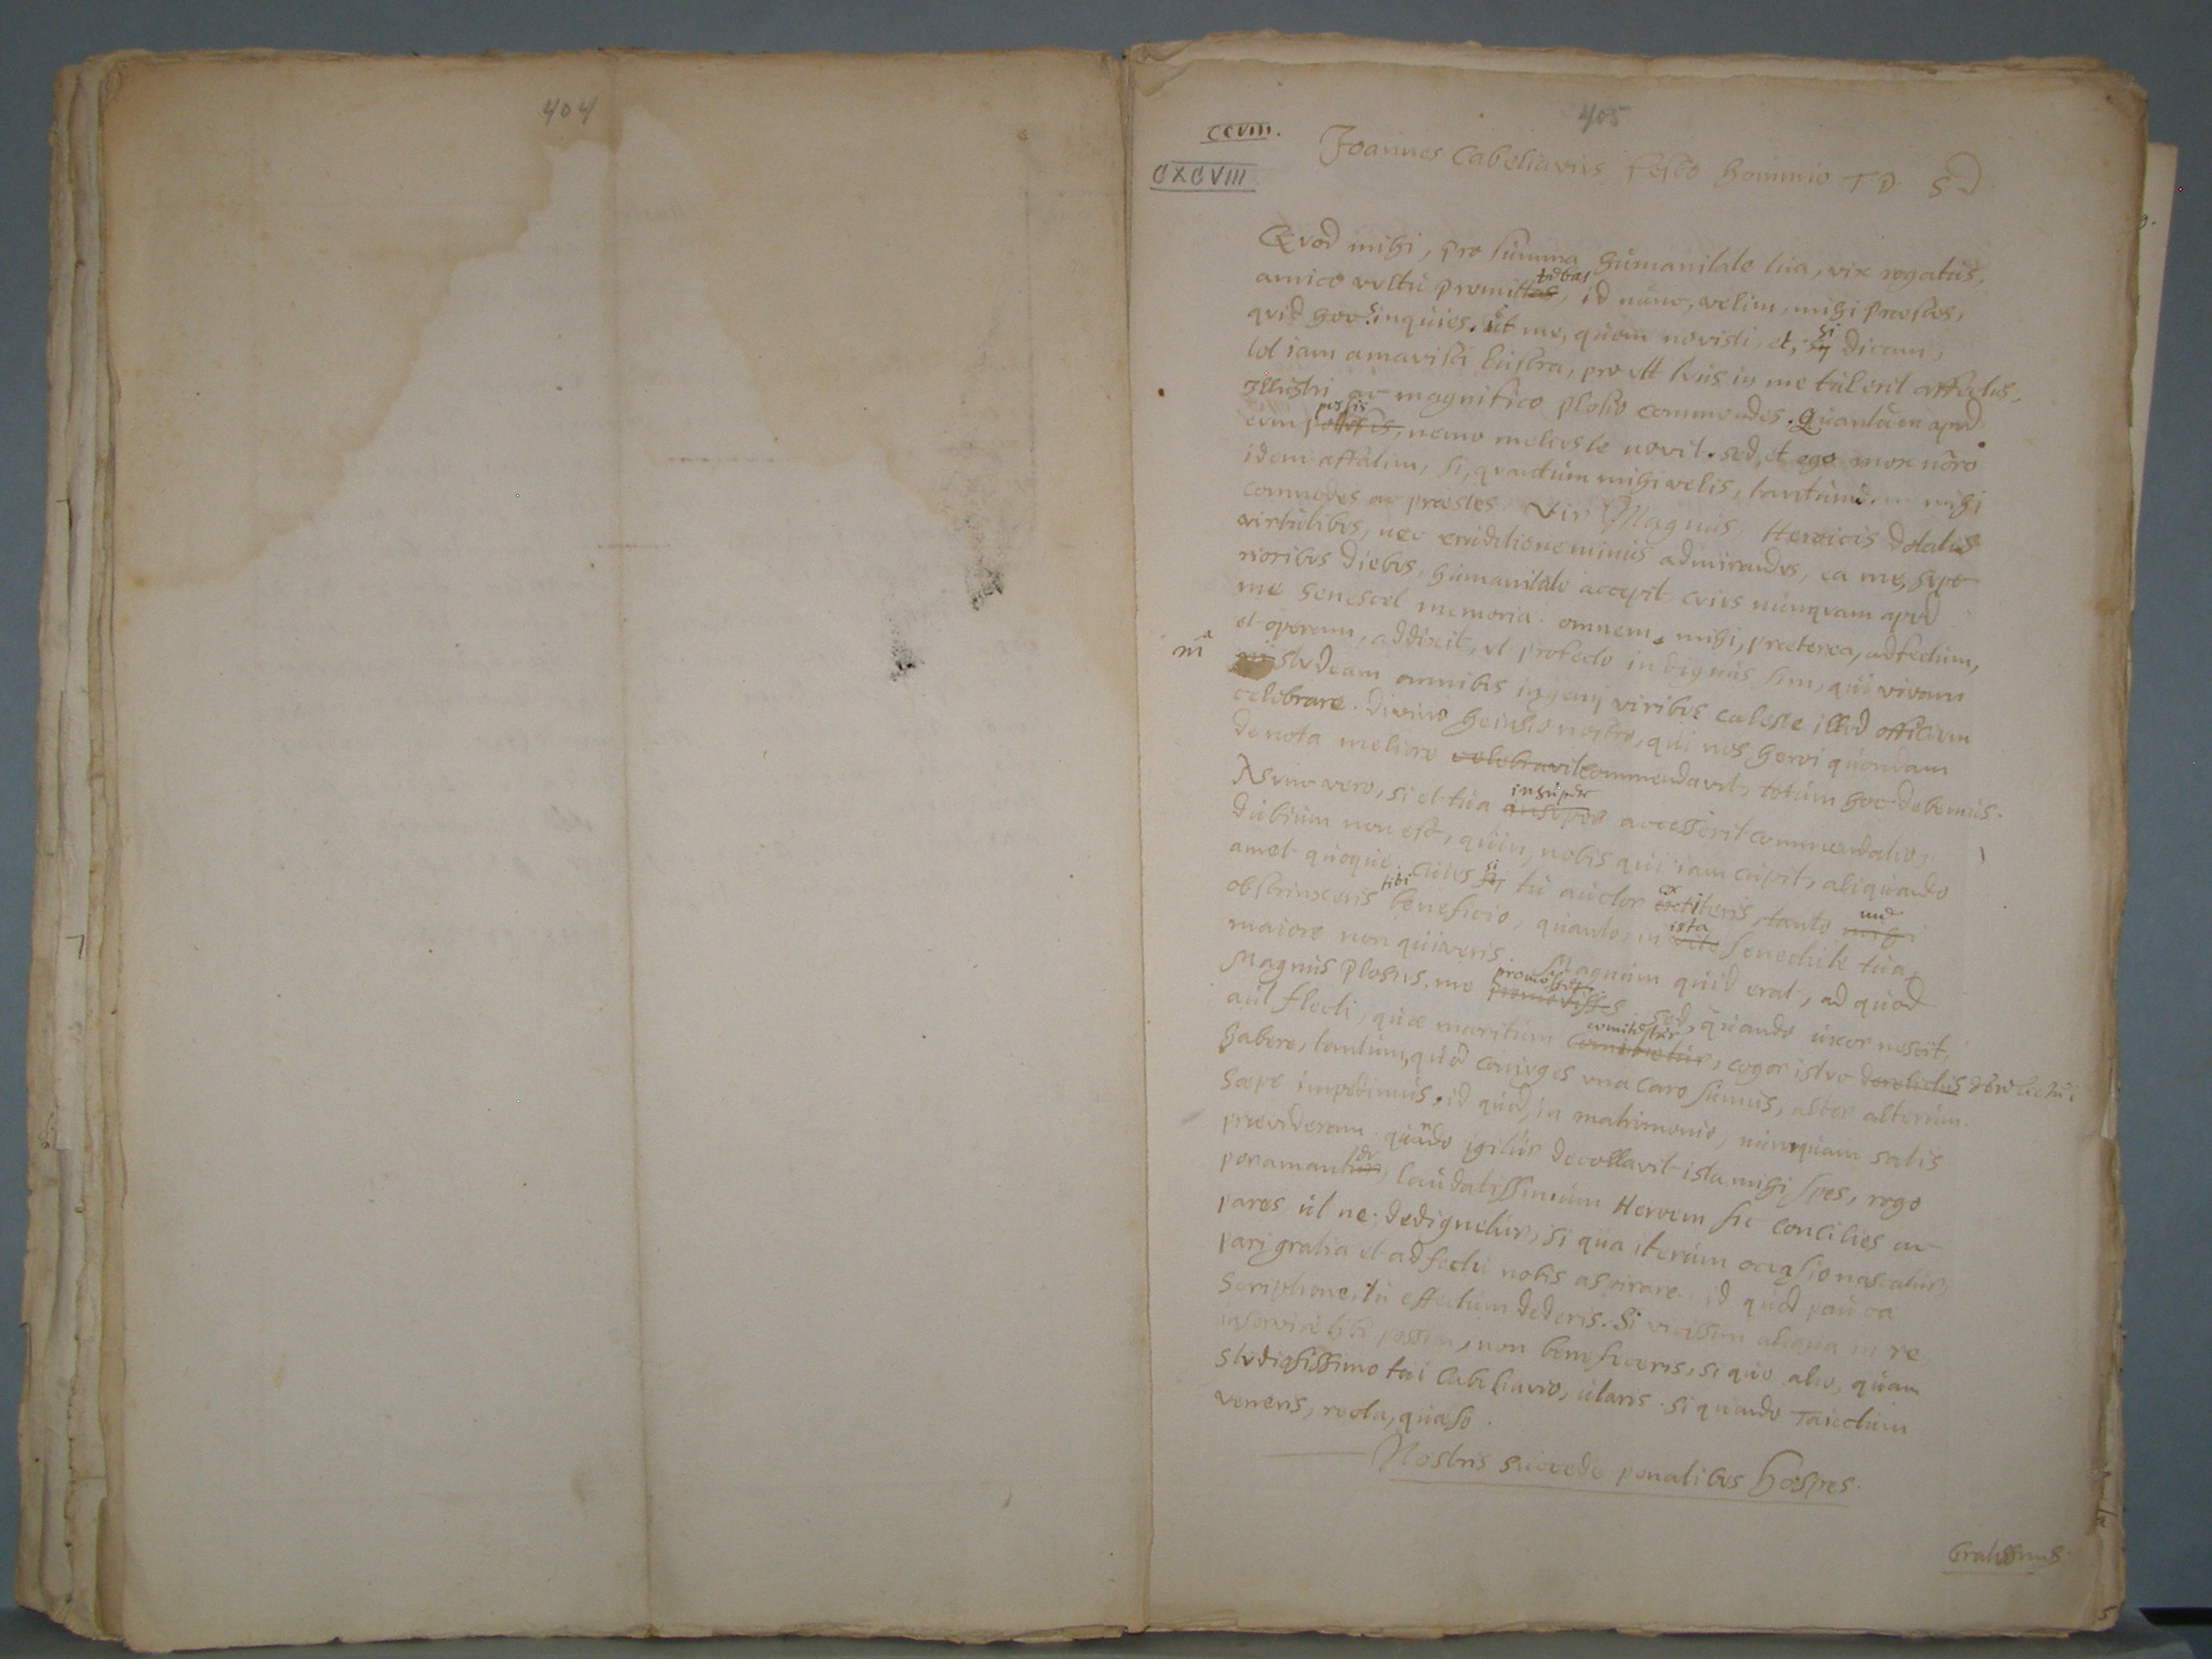 404
405
CCVIII.
CXCVIII
Joannes Cabeliavius Festo Hommio T D S D
Qvod mihi, pro summa humanitate tua, vix rogatus,
amico vvltu promittas tebas, id nunc, velim, mihi præstes,
qvid hoc? inquies. ut me, quem novisti, et, sy si dicam,
tot iam amavisti lustra, pro ut tuus in me tulerit affectus,
Illustri ac magnifico Plosio commendes. Quantum apud
eum possis, nemo melius te novit. sed, et ego mox nõro
idem affatim, si, quantum mihi velis, tantundem mihi
commodes ac præstes. Vir Magnus, Heroicis dotatus
virtutibus, nec eruditione minus admirandus, ea me, supe
rioribus diebus, humanitate accepit cuius nunquam apud
me senescet memoria. omnem, mihi, præterea, adfectum,
et operam, addixit, ut profecto indignus sim, qui vivam
ni studeam omnibus ingenij viribus cæleste illud officium
celebrare. Divino Heinsio nostro, qui nos heroi quondam
de nota meliore celebravit commendavit, totum hoc debemus.
Nunc vero, si et tua insuper insuper accesserit commendatio,
dubium non est, quin, nobis qui iam cupit, aliquando
amet quoque. Cuius sy si tu auctor extiteris, tanto mihi
obstrinxeris tibi beneficio, quanto, in vita ista senectute tua,
maiore non quiveris. Magnum quid erat, ad quod
Magnus Plosius, me promovisses sed, quando uxor nescit,
aut flecti, quæ maritum comitetur, cogor istuc derelictus
habere, tantum, quod coniuges una caro sumus, alter alterum
sæpe impedimus. id quod, in matrimonio, nunquam satis
prævideram. quando igitur decollavit ista mihi spes, rogo
peramanter, laudatissimum Heroem sic concilies ac
pares ut ne, dedignetur, si qua iterum occasio nascatur,
pari gratia et adfectu nobis aspirare. id quod pauca
scriptione, tu effectum dederis. Si vicissim aliqua in re
inservire tibi possim, non bene feceris, si quo alio, quam
studiosissimo tui Cabeliavio, utaris. si quando Traiectum
veneris, recta, quæso.
Nostris succede penatibus hospes.
Gratissimus